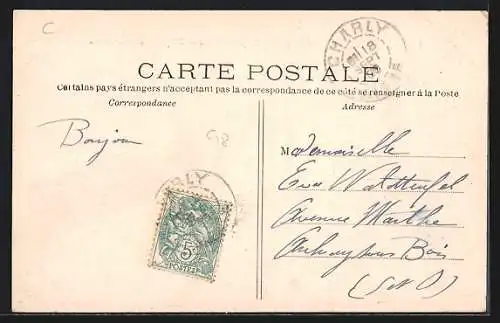 C
CHARLY
18
SEPT
CARTE POSTALE
Certains pays étrangers n'acceptant pas la correspondance de ce côté se renseigner à la Poste
Correspondance
Adresse
Bonjour
G8
Mademoiselle
Eva Waldteufel
Avenue Marthe
Aulnay sous Bois
(S et O)
CHARLY
5c
POSTES